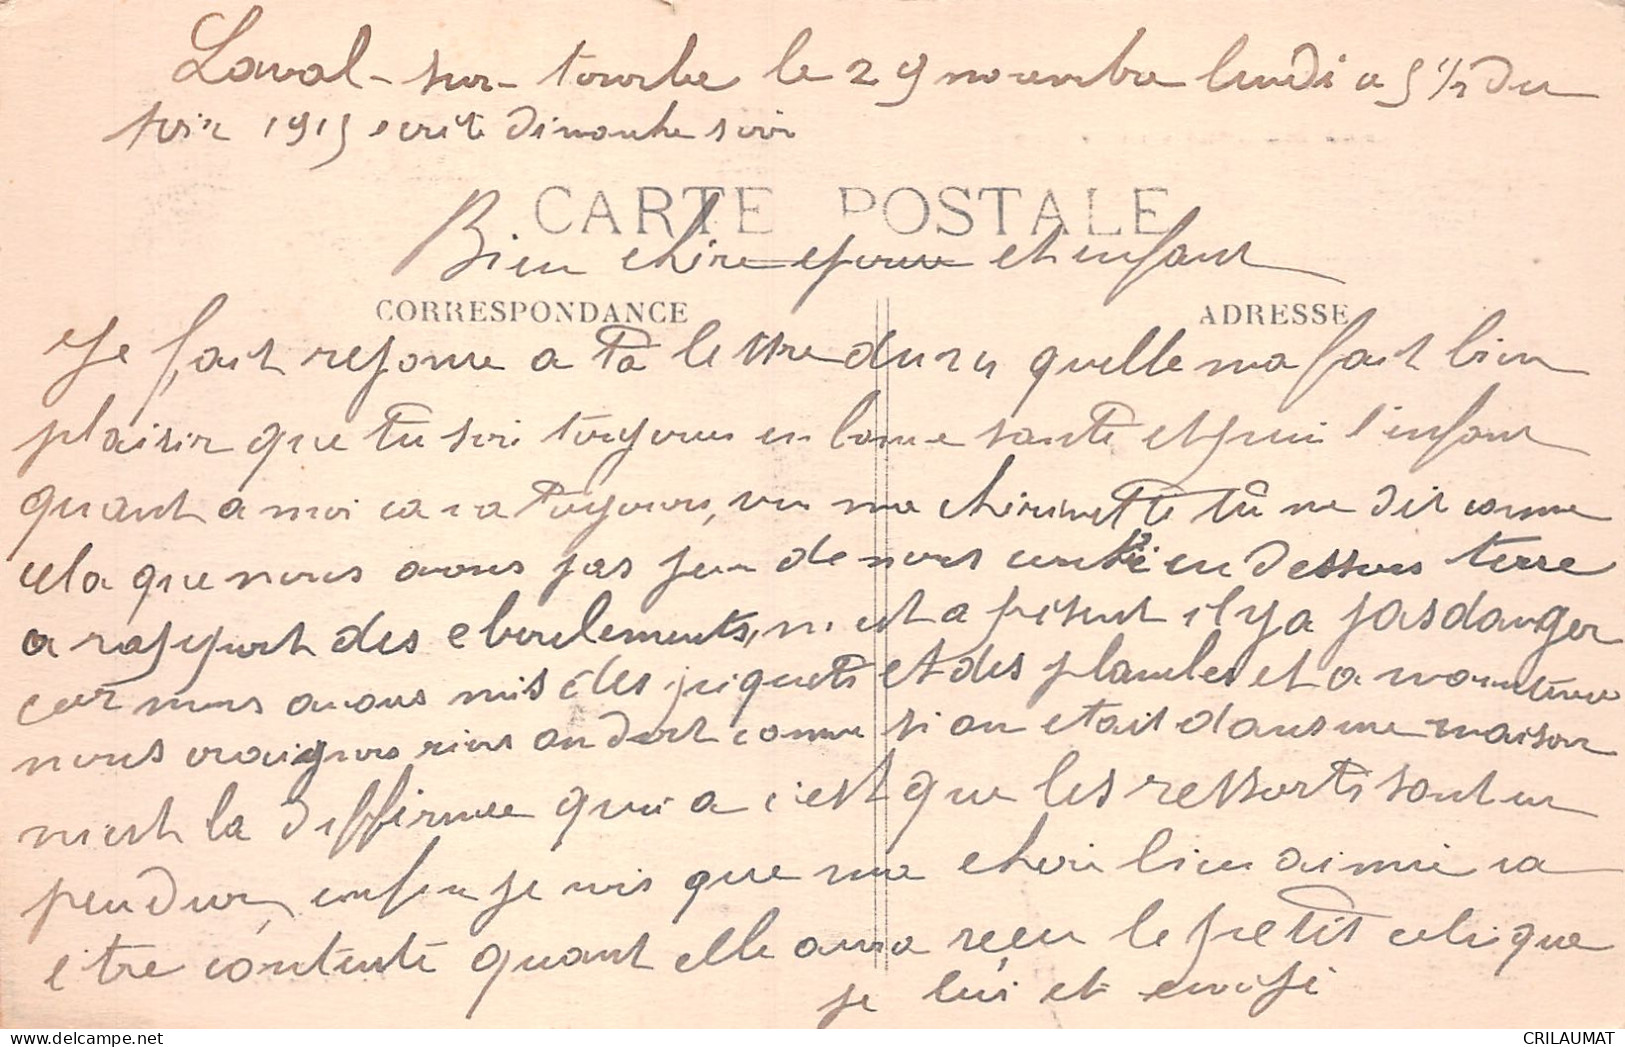 Laval-sur-tourbe le 29 novembre lundi a 5 1/2 du
soir 1915 ecrite dimanche soir
CARTE POSTALE
Bien chère epouse et enfant
CORRESPONDANCE
ADRESSE
Je fait reponse a ta lettre du 24 quelle ma fait bien
plaisir que tu soi toujours en bonne santé et puis l'enfant
quant a moi ca va toujours, ma tu me dit comme
cela que nous avons pas peur de nous en dessous terre
a rapport des eboulements, n'est a présent il y a pas danger
car nous avons mis des piquets et des planches et a maintenant
nous craignons rien on dort comme si on etait dans une maison
mais la difference qui a c'est que les ressorts sont un
peu dur, enfin je vois que ma cheri bien aimée va
etre contente quant elle aura reçu le petit colis que
je lui et
CRILAUMAT